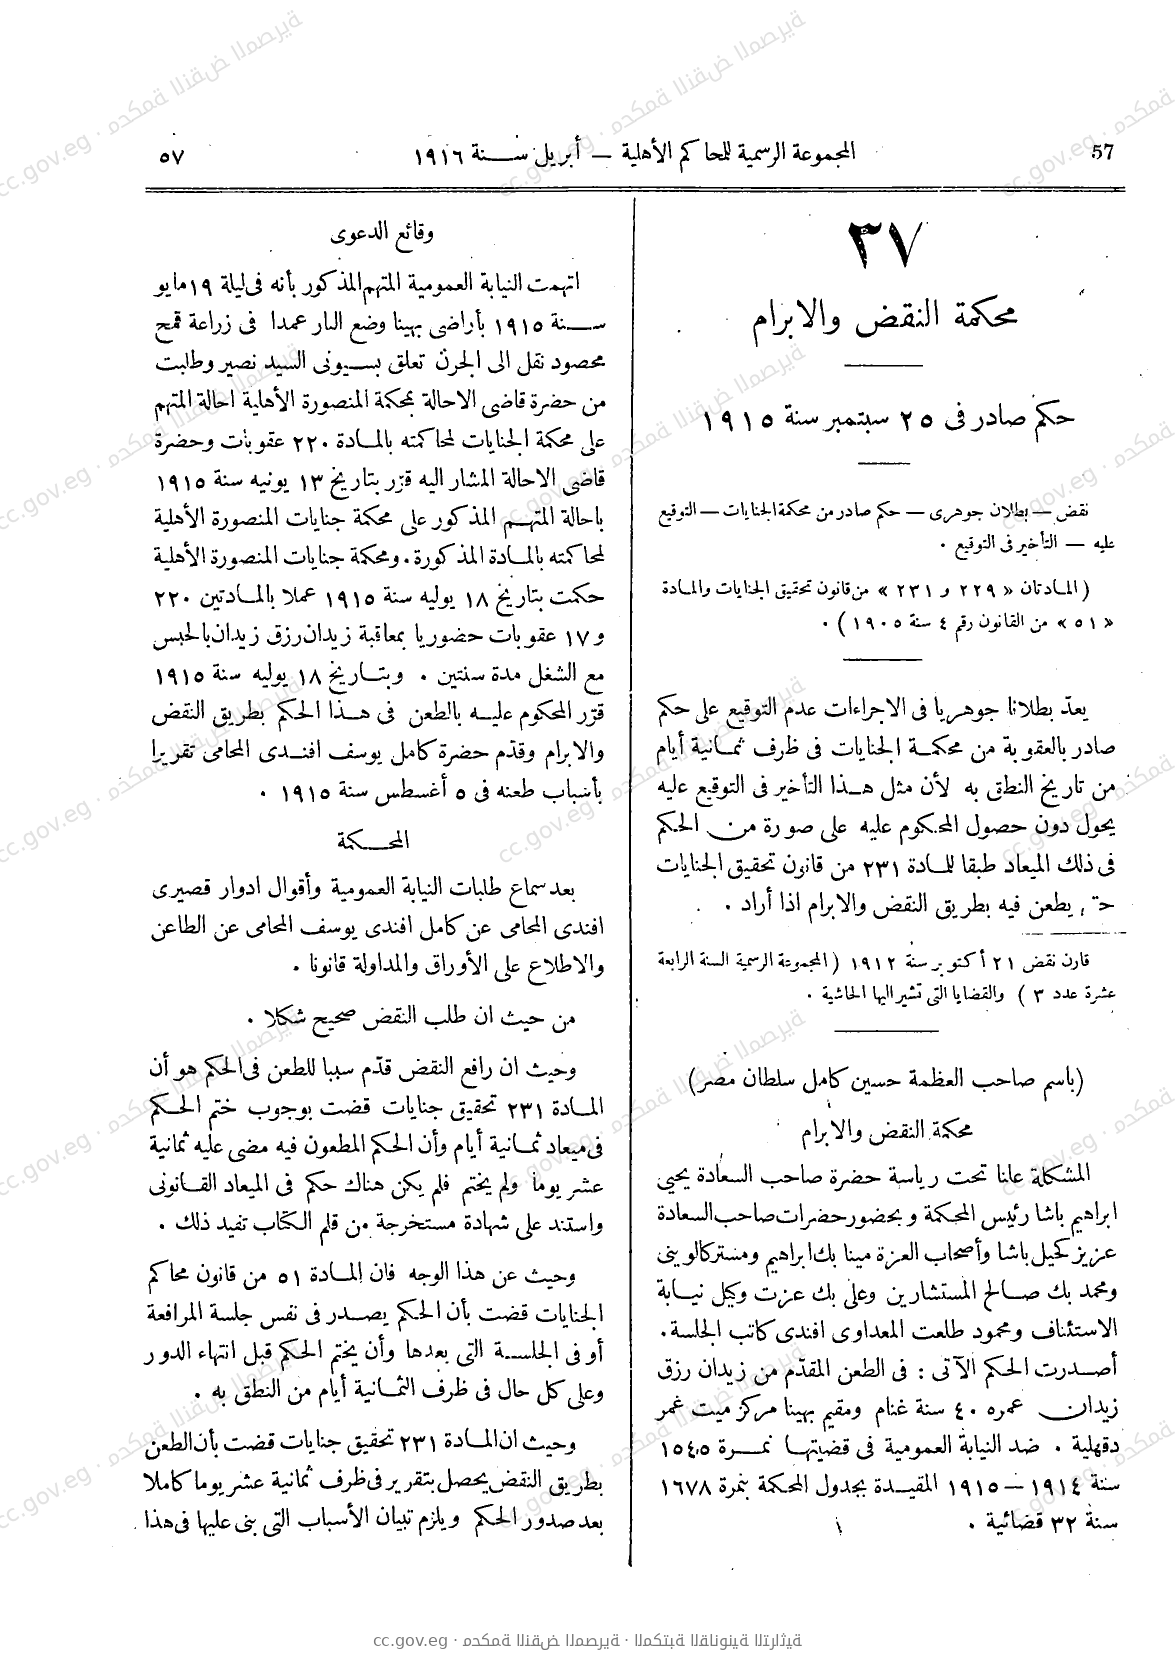 57
المجموعة الرسمية للمحاكم الأهلية — أبريل سنة ١٩١٦
٥٧
٣٧
محكمة النقض والابرام
حكم صادر فى ٢٥ سبتمبر سنة ١٩١٥
نقض — بطلان جوهرى — حكم صادر من محكمة الجنايات — التوقيع
عليه — التأخير فى التوقيع .
( المادتان « ٢٢٩ و ٢٣١ » من قانون تحقيق الجنايات والمادة
« ٥١ » من القانون رقم ٤ سنة ١٩٠٥ ) .
يعدّ بطلانا جوهريا فى الاجراءات عدم التوقيع على حكم
صادر بالعقوبة من محكمة الجنايات فى ظرف ثمانية أيام
من تاريخ النطق به لأن مثل هذا التأخير فى التوقيع عليه
يحول دون حصول المحكوم عليه على صورة من الحكم
فى ذلك الميعاد طبقا للمادة ٢٣١ من قانون تحقيق الجنايات
حتى يطعن فيه بطريق النقض والابرام اذا أراد .
قارن نقض ٢١ أكتوبر سنة ١٩١٢ ( المجموعة الرسمية السنة الرابعة
عشرة عدد ٣ ) والقضايا التى تشير اليها الحاشية .
(باسم صاحب العظمة حسين كامل سلطان مصر)
محكمة النقض والابرام
المشكلة علنا تحت رياسة حضرة صاحب السعادة يحيى
ابراهيم باشا رئيس المحكمة وبحضور حضرات صاحب السعادة
عزيز كحيل باشا وأصحاب العزة مينا بك ابراهيم ومستر كالوينى
ومحمد بك صالح المستشارين وعلى بك عزت وكيل نيابة
الاستئناف ومحمود طلعت المعداوى افندى كاتب الجلسة.
أصدرت الحكم الآتى : فى الطعن المقدّم من زيدان رزق
زيدان عمره ٤٠ سنة غنام ومقيم بهينا مركز ميت غمر
دقهلية . ضد النيابة العمومية فى قضيتها نمرة ١٥٤٥
سنة ١٩١٤ — ١٩١٥ المقيدة بجدول المحكمة بنمرة ١٦٧٨
سنة ٣٢ قضائية .
وقائع الدعوى
اتهمت النيابة العمومية المتهم المذكور بأنه فى ليلة ١٩ مايو
سنة ١٩١٥ بأراضى بهينا وضع النار عمدا فى زراعة قمح
محصود نقل الى الجرن تعلق بسيونى السيد نصير وطلبت
من حضرة قاضى الاحالة بمحكمة المنصورة الأهلية احالة المتهم
على محكمة الجنايات لمحاكمته بالمادة ٢٢٠ عقوبات وحضرة
قاضى الاحالة المشار اليه قرّر بتاريخ ١٣ يونيه سنة ١٩١٥
باحالة المتهم المذكور على محكمة جنايات المنصورة الأهلية
لمحاكمته بالمادة المذكورة . ومحكمة جنايات المنصورة الأهلية
حكمت بتاريخ ١٨ يوليه سنة ١٩١٥ عملا بالمادتين ٢٢٠
و ١٧ عقوبات حضوريا بمعاقبة زيدان رزق زيدان بالحبس
مع الشغل مدة سنتين . وبتاريخ ١٨ يوليه سنة ١٩١٥
قرّر المحكوم عليه بالطعن فى هذا الحكم بطريق النقض
والابرام وقدّم حضرة كامل يوسف افندى المحامى تقريرا
بأسباب طعنه فى ٥ أغسطس سنة ١٩١٥ .
المحكمة
بعد سماع طلبات النيابة العمومية وأقوال ادوار قصيرى
افندى المحامى عن كامل افندى يوسف المحامى عن الطاعن
والاطلاع على الأوراق والمداولة قانونا .
من حيث ان طلب النقض صحيح شكلا .
وحيث ان رافع النقض قدّم سببا للطعن فى الحكم هو أن
المادة ٢٣١ تحقيق جنايات قضت بوجوب ختم الحكم
فى ميعاد ثمانية أيام وأن الحكم المطعون فيه مضى عليه ثمانية
عشر يوما ولم يختم فلم يكن هناك حكم فى الميعاد القانونى
واستند على شهادة مستخرجة من قلم الكتاب تفيد ذلك .
وحيث عن هذا الوجه فان المادة ٥١ من قانون محاكم
الجنايات قضت بأن الحكم يصدر فى نفس جلسة المرافعة
أو فى الجلسة التى بعدها وأن يختم الحكم قبل انتهاء الدور
وعلى كل حال فى ظرف الثمانية أيام من النطق به .
وحيث ان المادة ٢٣١ تحقيق جنايات قضت بأن الطعن
بطريق النقض يحصل بتقرير فى ظرف ثمانية عشر يوما كاملا
بعد صدور الحكم ويلزم تبيان الأسباب التى بنى عليها فى هذا
cc.gov.eg · محكمة النقض المصرية · المكتبة القانونية التراثية